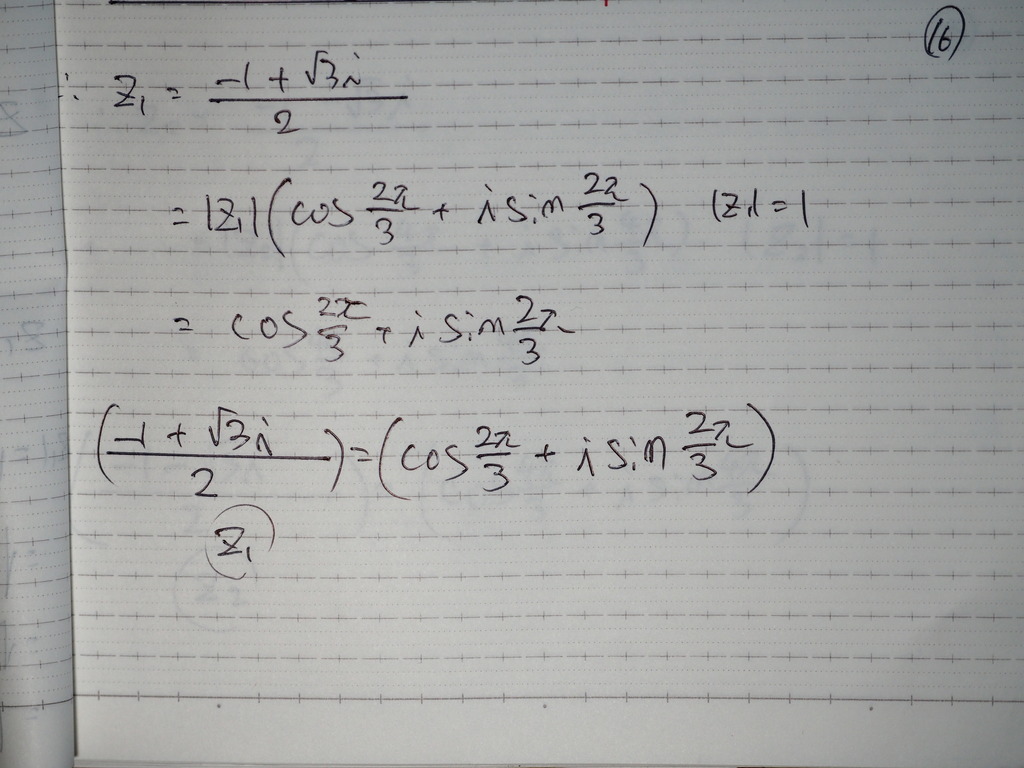 (16)
∴ Z₁ = (-1 + √3i)/2
= |Z₁|(cos 2π/3 + i sin 2π/3) |Z₁| = 1
= cos 2π/3 + i sin 2π/3
((-1 + √3i)/2) = (cos 2π/3 + i sin 2π/3)
Z₁